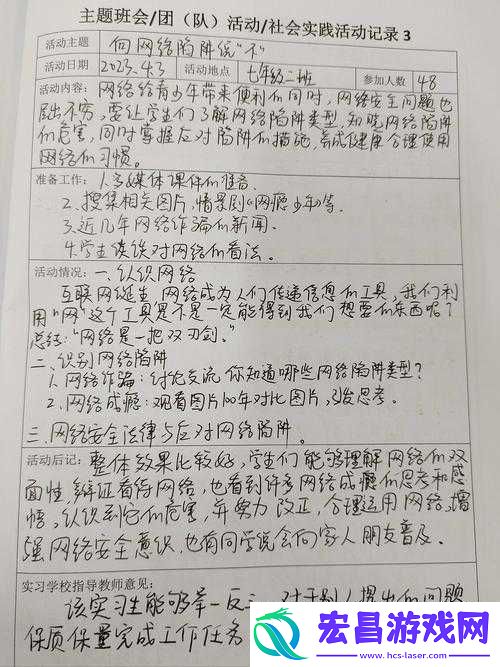 主题班会/团（队）活动/社会实践活动记录 3
活动主题 向网络陷阱说“不”
活动日期 2023.4.3 活动地点 七年级二班 参加人数 48
活动内容：网络给青少年带来便利的同时，网络安全问题也
层出不穷，要让学生们了解网络陷阱类型，知晓网络陷阱
的危害，同时掌握应对陷阱的措施，养成健康合理使用
网络的习惯。
准备工作：1.多媒体课件的准备.
2.搜集相关图片，情景剧《网瘾少年》等.
3.近几年网络诈骗的新闻.
4.学生谈谈对网络的看法。
活动情况：一.认识网络
互联网诞生，网络成为人们传递信息的工具，我们利
用“网”这个工具是不是一定能得到我们想要的东西呢？
总结：“网络是一把双刃剑。”
二.识别网络陷阱
1.网络诈骗：讨论交流 你知道哪些网络陷阱类型？
2.网络成瘾：观看图片100年对比图片，引发思考。
三.网络安全法律与应对网络陷阱。
活动后记：整体效果比较好，学生们能够理解网络的双
面性，辩证看待网络，也看到许多网络成瘾的思考和感
悟，认识到它的危害，并努力改正，合理运用网络，增
强网络安全意识，也有同学说会向家人朋友普及。
实习学校指导教师意见：
该实习生能够举一反三，对于别人提出的问题
保质保量完成工作任务
宏昌游戏网
www.hcs-laser.com